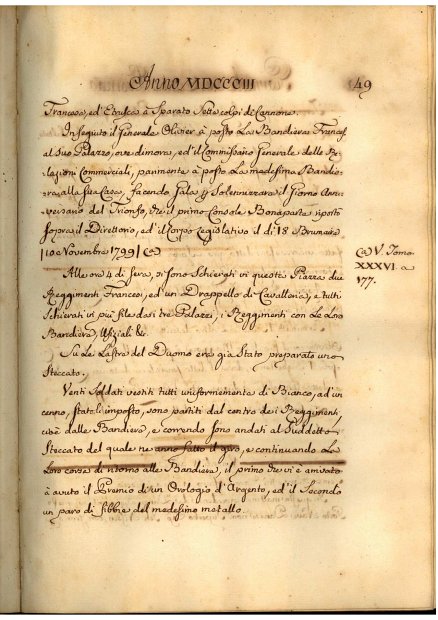 Anno MDCCCIII
49
Francese, ed' Etrusca à Sparato Sette colpi di Cannone.
In seguito il Generale Olivier à posto La Bandiera Frances.
al suo Palazzo, ove dimora, ed' il Commissario Generale delle Re-
lazioni Commerciali, parimente à posto La medesima Bandie-
ra alla sua Casa, facendo Gala p Solennizzare il Giorno Anni-
versario del Trionfo, che il primo Console Bonaparte riportò
sopra il Direttorio, ed' il Corpo Legislativo il dì 18 Brumaire
10 Novembre 1799 (a)
(a) V. Tomo
XXXVI. a
177.
Alle ore 4 di sera, si sono Schierati su questa Piazza due
Reggimenti Francesi, ed' un Drappello di Cavalleria, e tutti
Schierati in più file dasi tre Palazzi, i Reggimenti con Le Loro
Bandiera, Ufiziali &c
Su Le Lastre del Duomo era già Stato preparato uno
Steccato.
Venti Soldati vestiti tutti uniformemente di Bianco, ad' un
cenno, statoli imposto, sono partiti dal centro de i Reggimenti,
cioè dalle Bandiera, e correndo sono andati al Suddetto
Steccato del quale ne anno fatto il giro, e continuando La
Loro corsa di ritorno alle Bandiera, il primo che vi è arrivato
à avuto il Premio di un Orologio d'Argento, ed' il Secondo
un paro di fibbie del medesimo metallo.